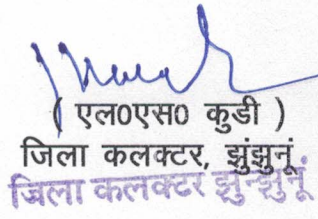 ( एल0एस0 कुडी )
जिला कलक्टर, झुंझुनूं
जिला कलक्टर झुन्झुनूं